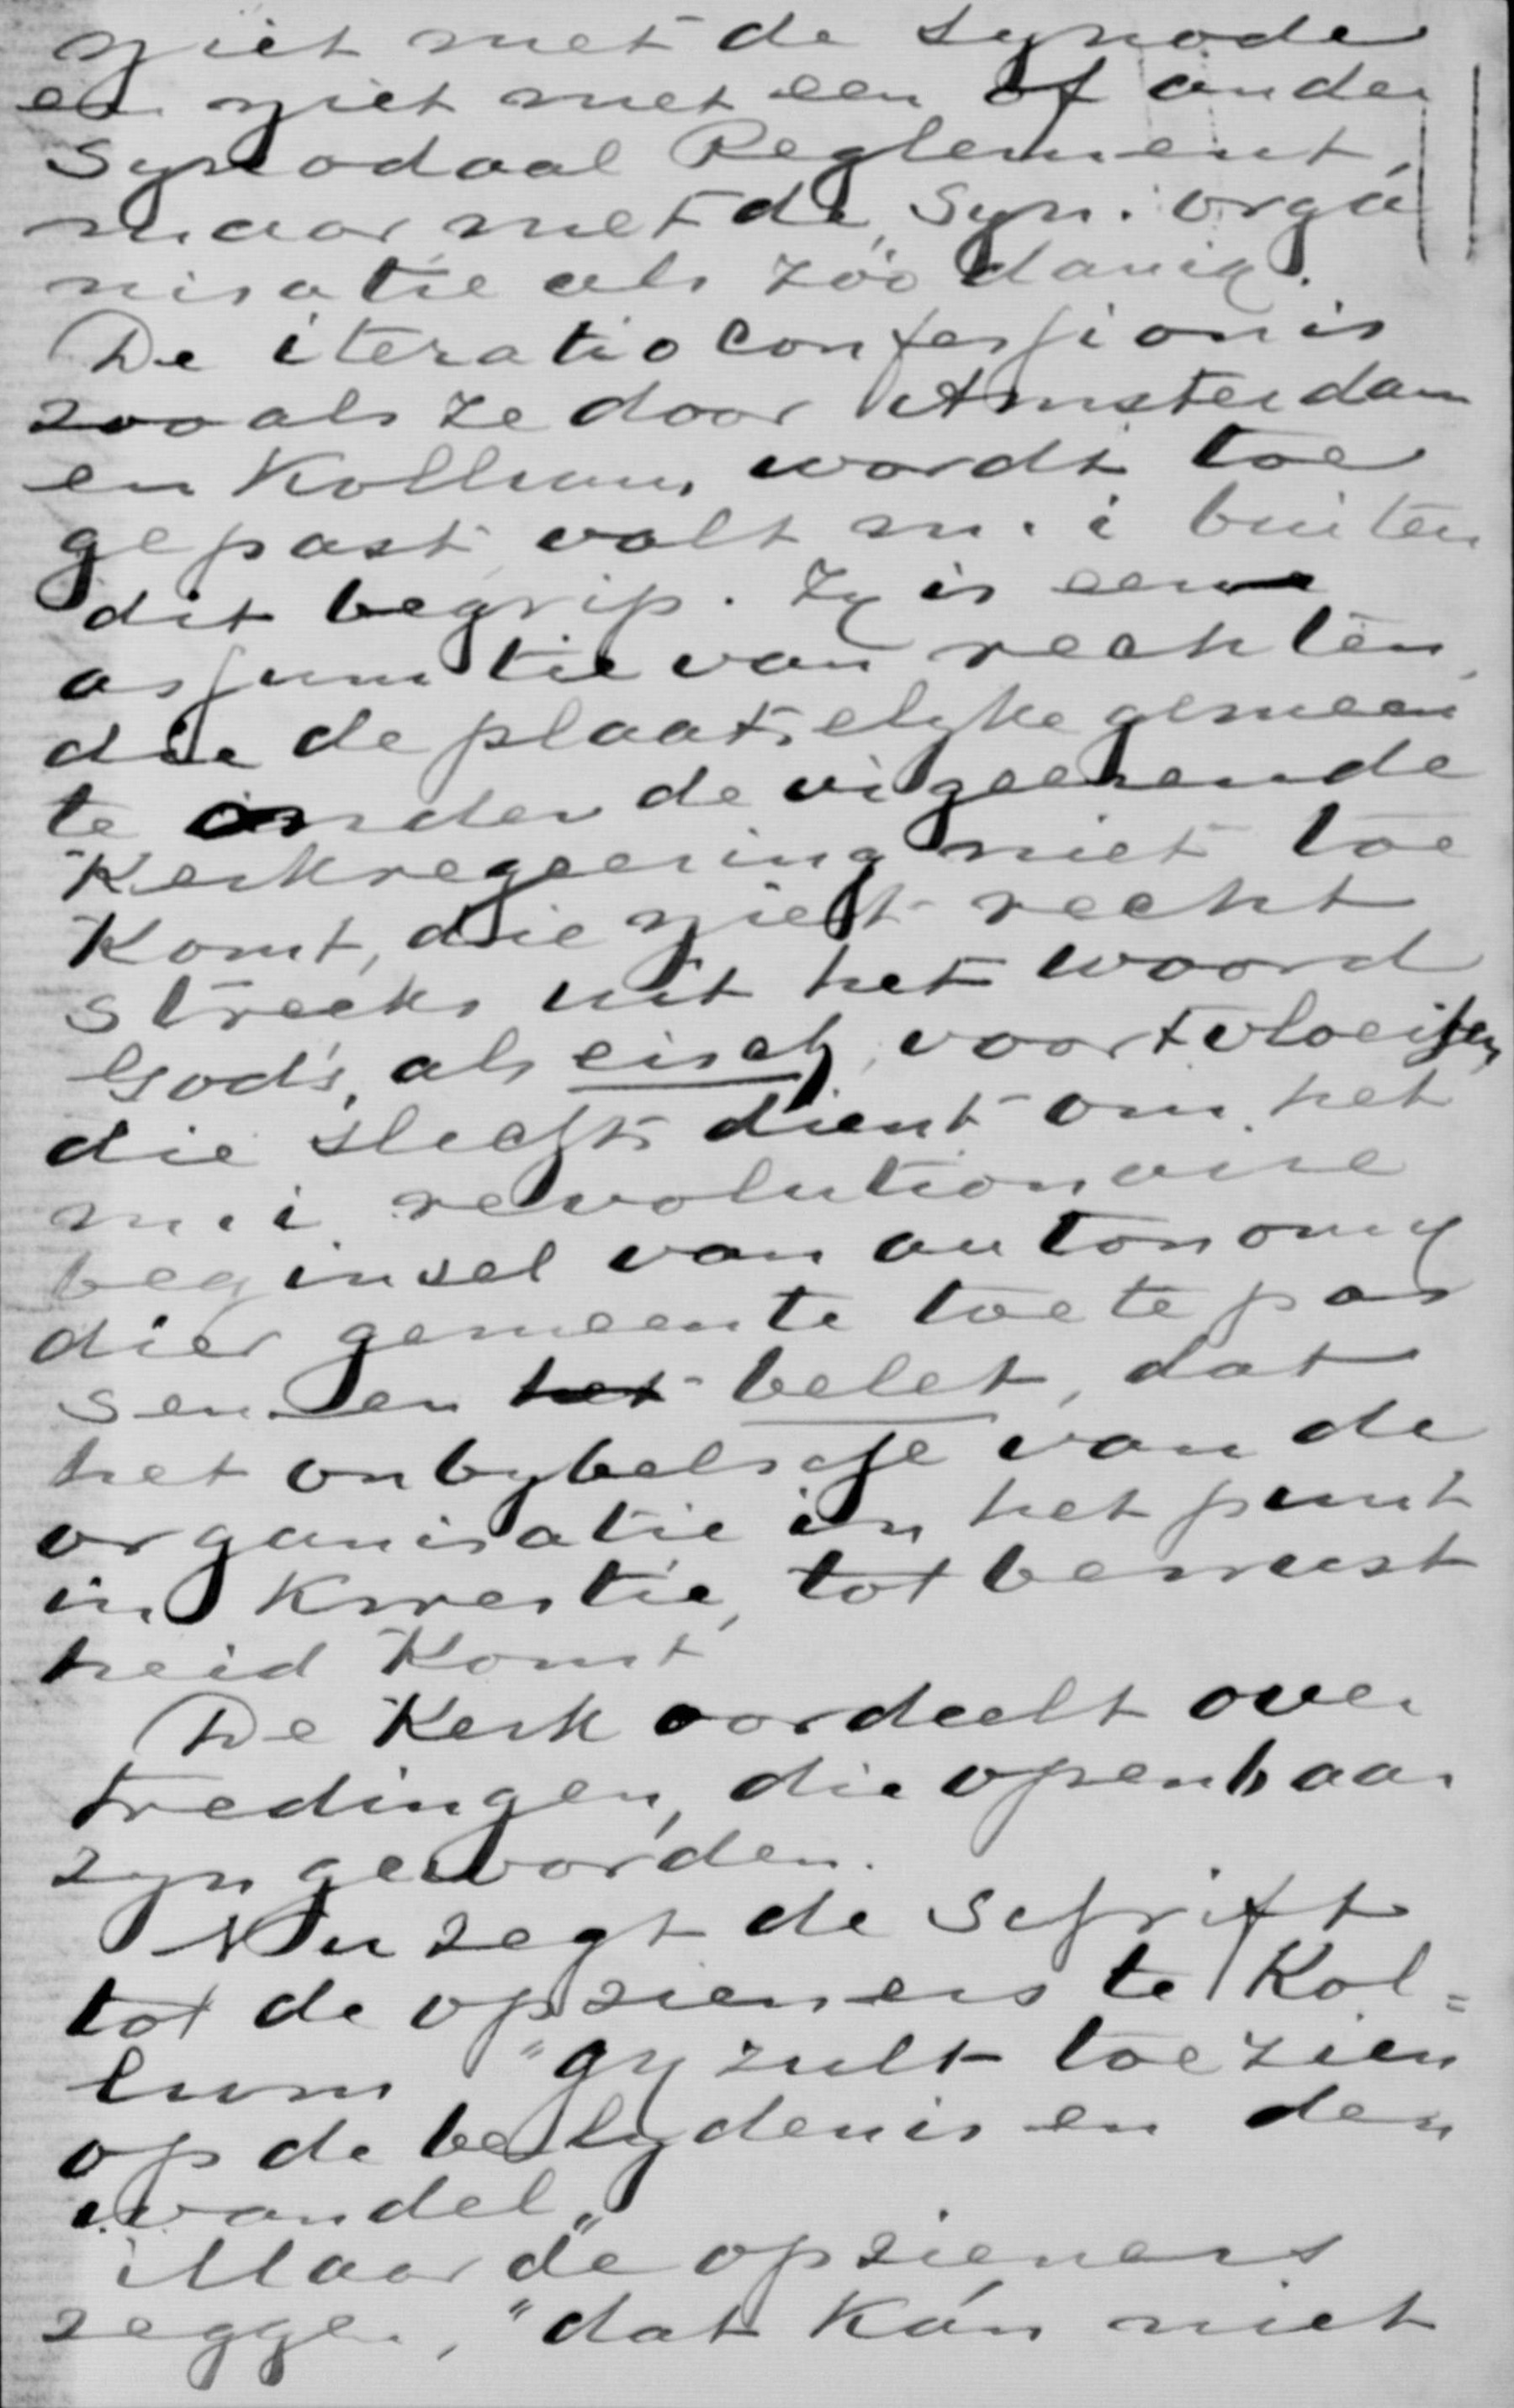 niet met de synode
en niet met een of ander
Synodaal Reglement,
maar met de Syn. orga
nisatie als zóó danig.
De iteratio confessionis
zooals ze door Amsterdam
en Kollum, wordt toe
gepast valt m. i buiten
dit begrip. Zy is eene
assumtie van rechten,
die de plaatselyke gemeen
te onder de vigeerende
Kerkregeering niet toe
Komt, die niet recht
streeks uit het woord
Gods, als eisch, voortvloeijen,
die slechts dient om het
m. i revolutionaire
beginsel van autonomy
dier gemeente toe te pas
sen en het belet, dat
het onbybelsche van de
organisatie in het punt
in Kwestie, tot bewust
heid Komt
De Kerk oordeelt over
tredingen, die openbaar
zyn geworden.
Nu zegt de Schrift
tot de opzieners te Kol=
lum "gy zult toezien
op de belydenis en den
wandel„
Maar de opzieners
zeggen, "dat kán niet